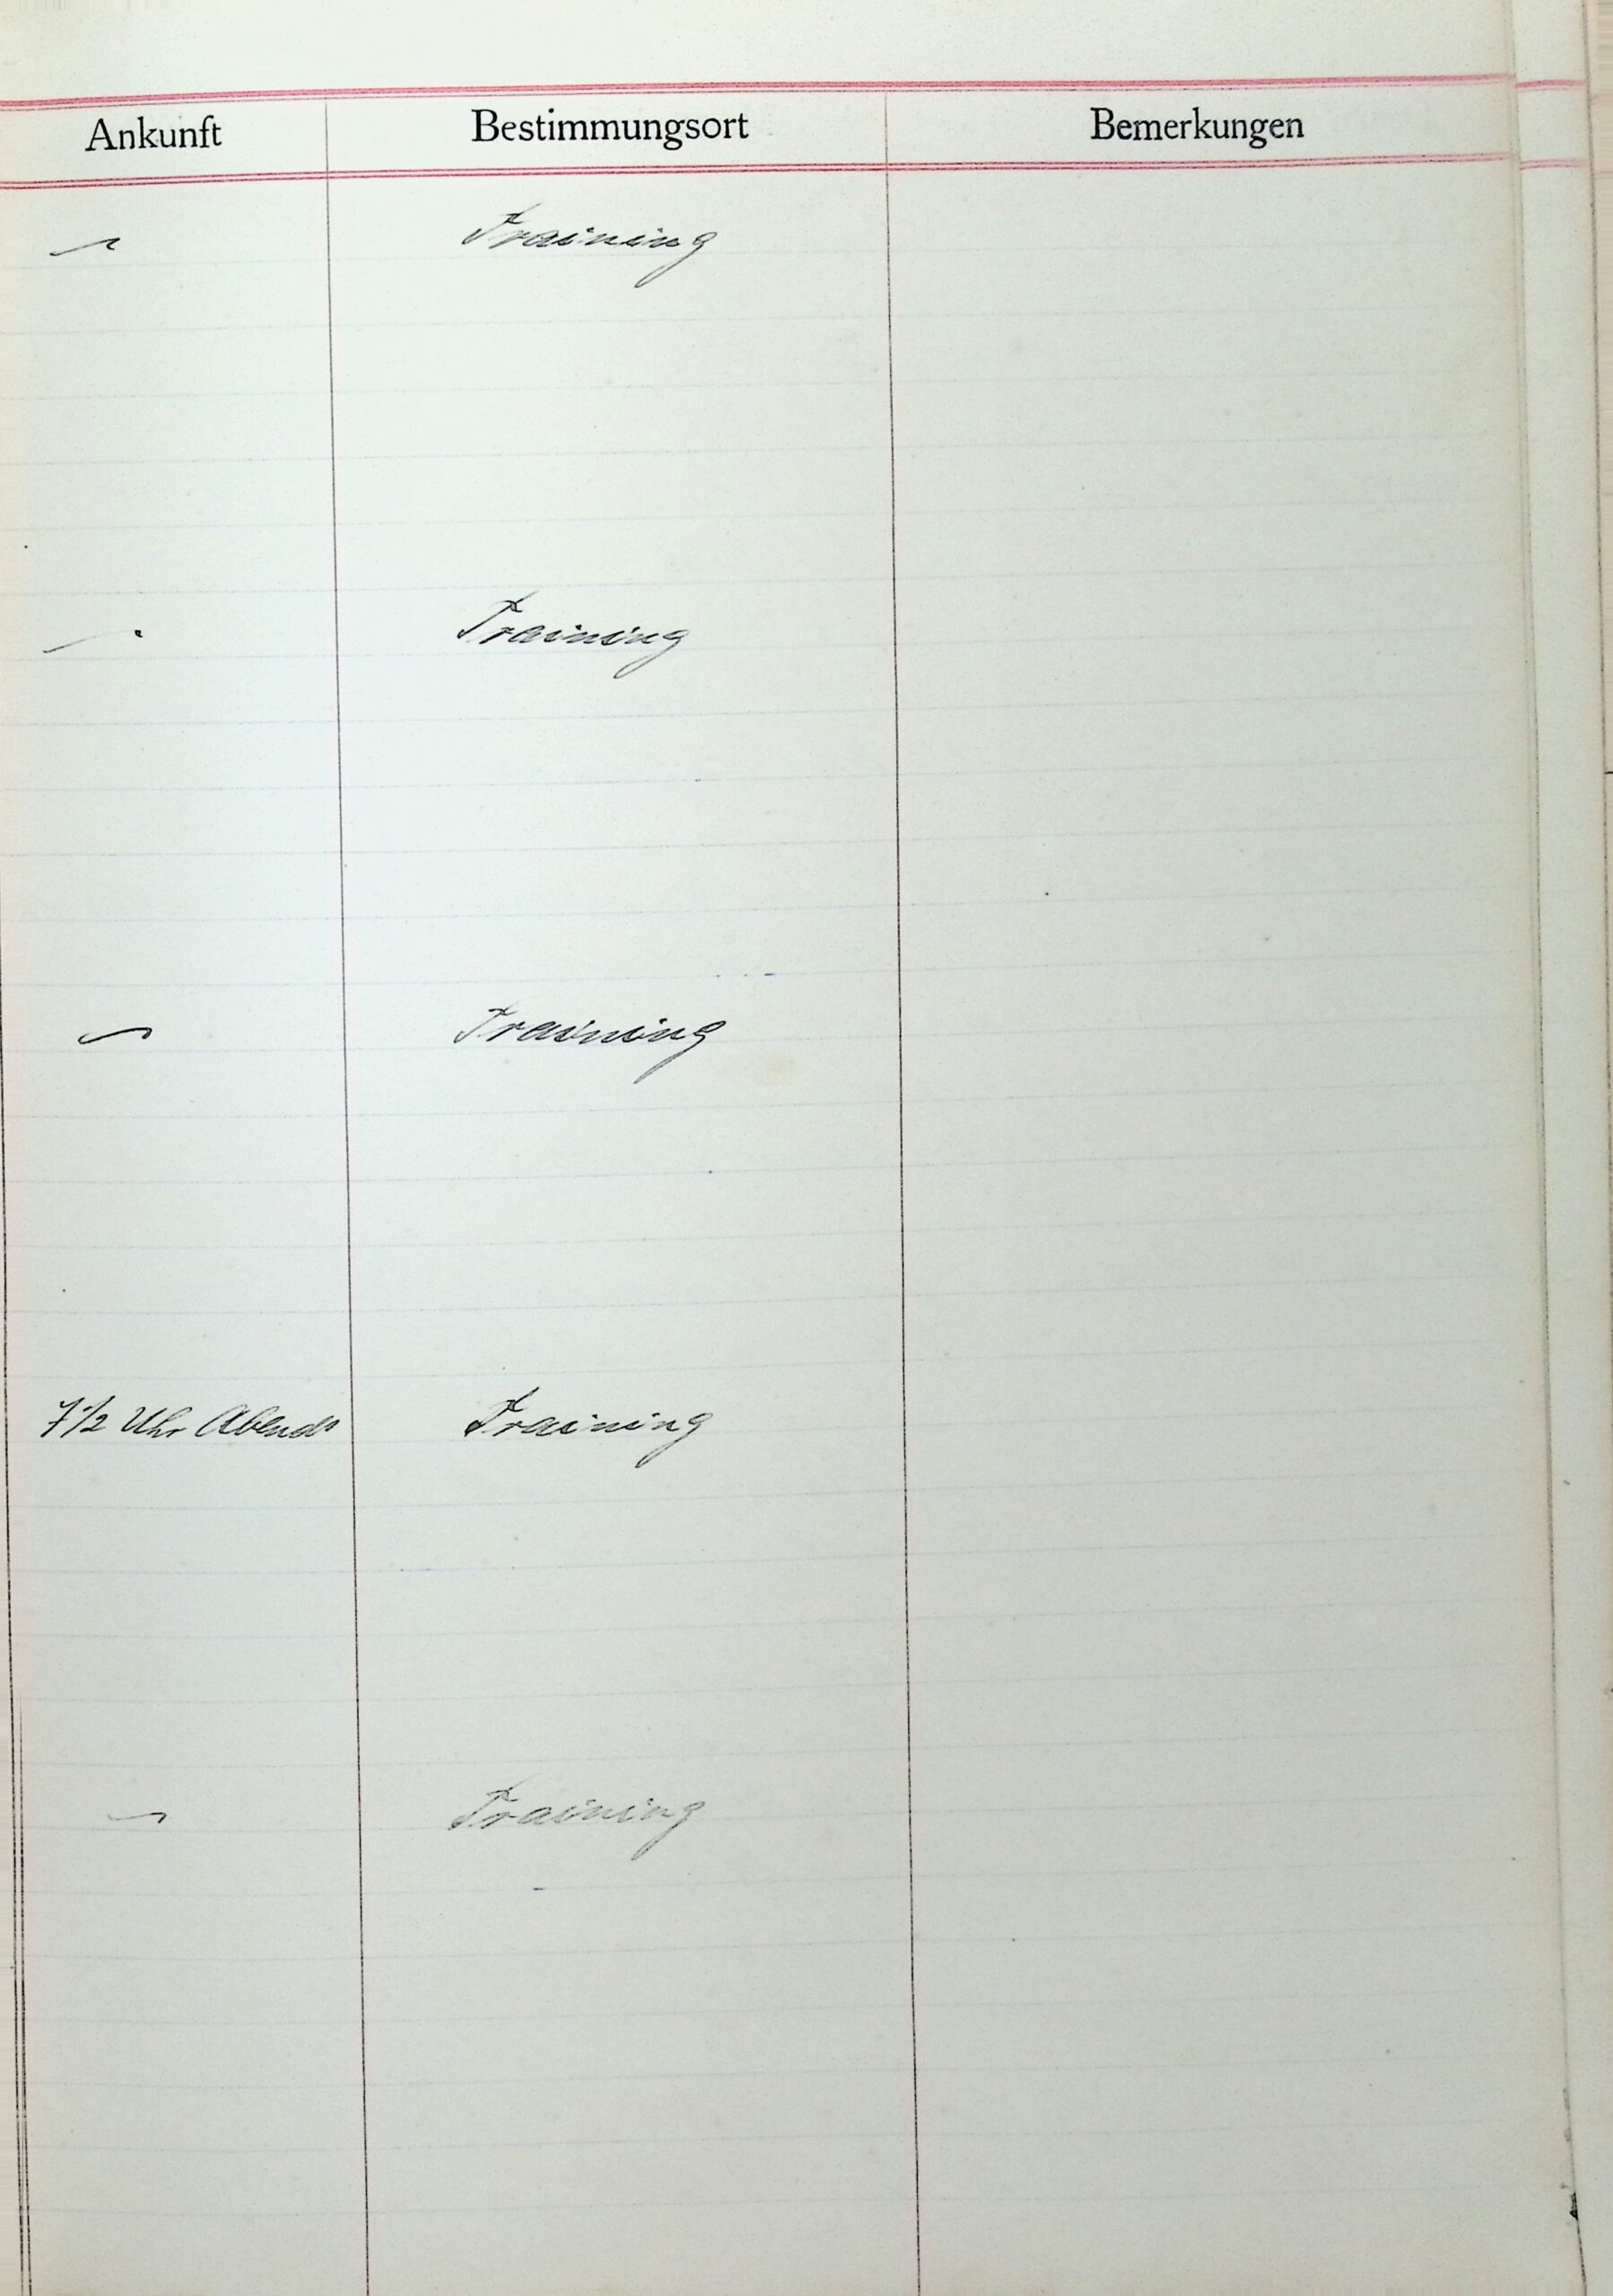 Ankunft Bestimmungsort Bemerkungen
— Training
— Training
— Training
7 1/2 Uhr Abends Training
— Training